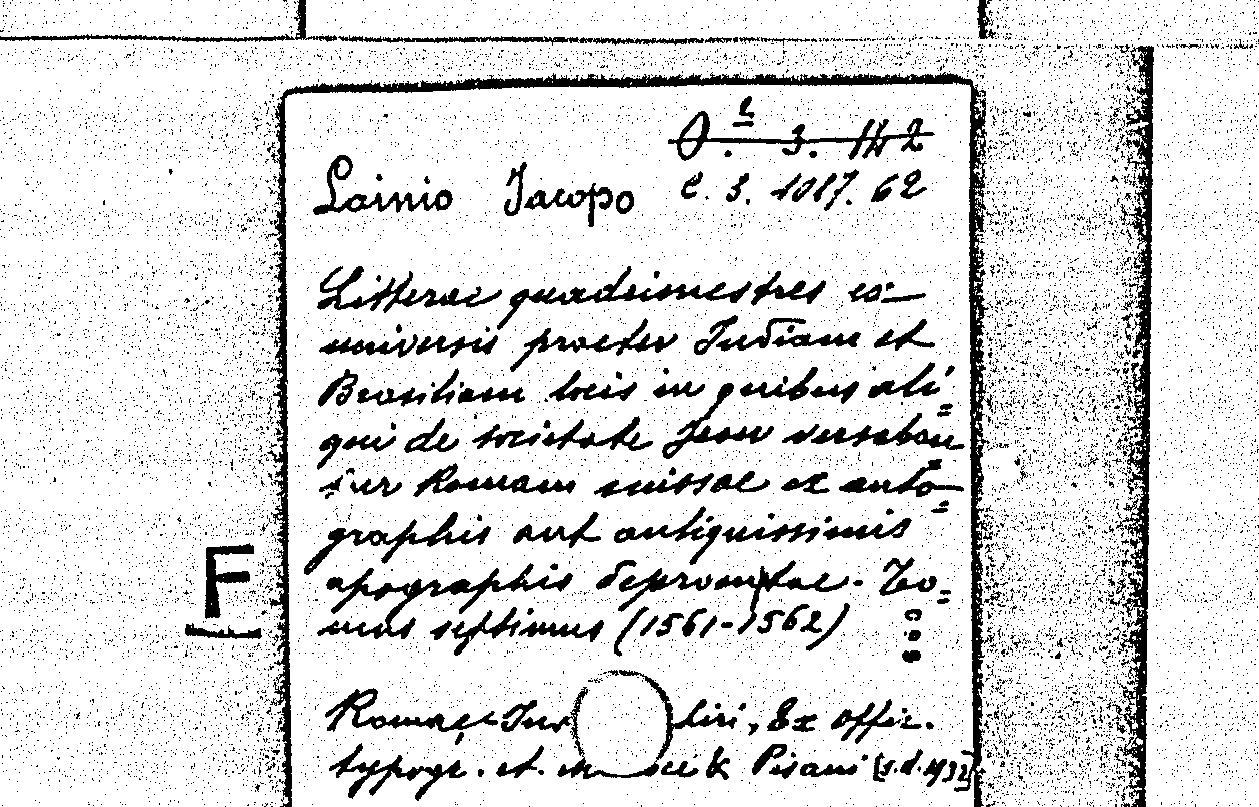 O. 3. 142
Lainio Jacopo C. 3. 1017. 62
Litterae quadrimestres ex
universis praeter Indiam et
Brasiliam locis in quibus ali=
qui de societate Jesu versaban
tur Romam missae ex auto=
graphis aut antiquissimis
apographis depromptae. To=
mus septimus (1561-1562)
F
Romae, Ex offic.
typogr. et. Pisani [s.d. 1932]